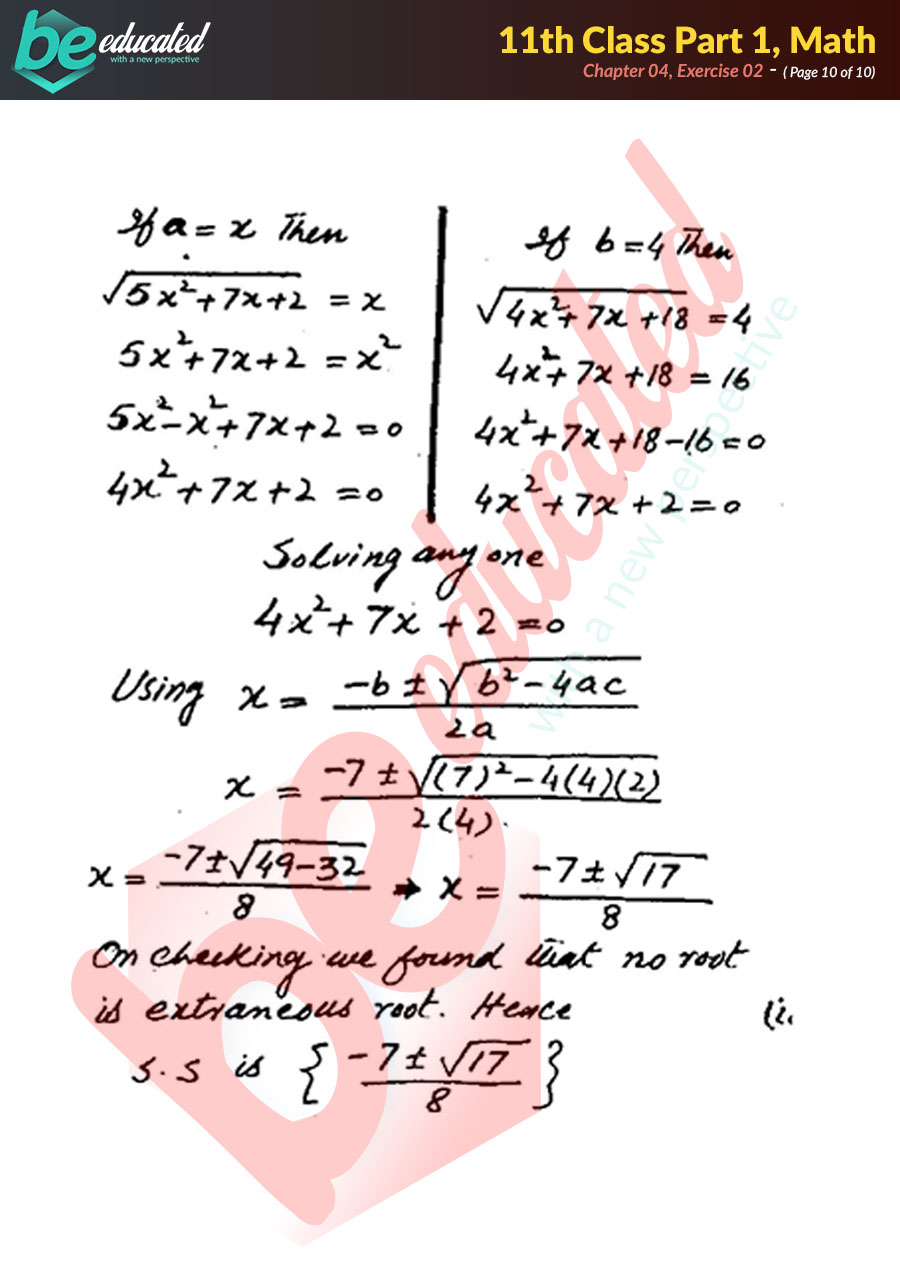 be educated
with a new perspective
11th Class Part 1, Math
Chapter 04, Exercise 02 - ( Page 10 of 10)
If a = x Then
√(5x²+7x+2) = x
5x²+7x+2 = x²
5x²-x²+7x+2 = 0
4x²+7x+2 = 0
If b = 4 Then
√(4x²+7x+18) = 4
4x²+7x+18 = 16
4x²+7x+18-16 = 0
4x²+7x+2 = 0
Solving any one
4x²+7x+2 = 0
Using x = (-b ± √(b²-4ac))/2a
x = (-7 ± √((7)²-4(4)(2)))/2(4).
x = (-7±√(49-32))/8 → x = (-7±√17)/8
On checking we found that no root
is extraneous root. Hence (i.
S.S is {(-7±√17)/8}
be educated
with a new perspective